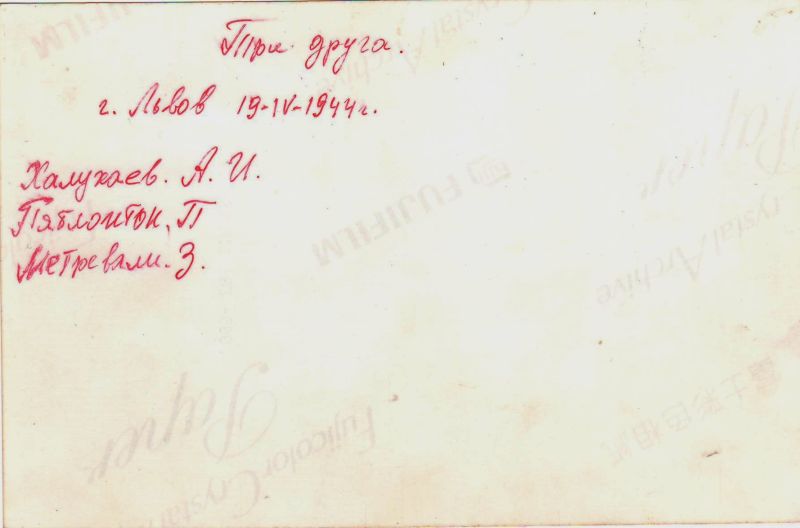 Три друга.
г. Львов 19-IV-1944г.
Халухаев. А. И.
Пятлоитон, П
Метревали. З.
FUJIFILM
Crystal Archive
Paper
FUJIFILM
Crystal Archive
Paper
Fujicolor Crystal
富士彩色相紙